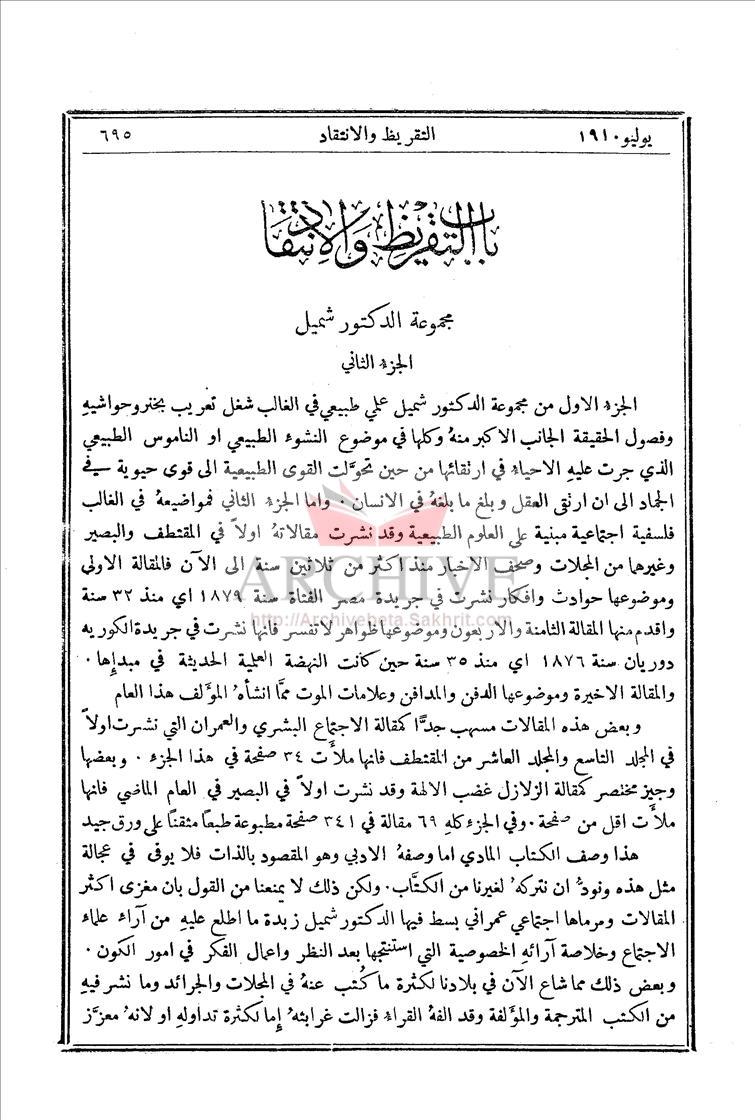 يوليو ١٩١٠ التقريظ والانتقاد ٦٩٥
باب التقريظ والانتقاد
مجموعة الدكتور شميل
الجزء الثاني
الجزء الاول من مجموعة الدكتور شميل علمي طبيعي في الغالب شغل تعريب بخنر وحواشيهِ
وفصول الحقيقة الجانب الاكبر منهُ وكلها في موضوع النشوء الطبيعي او الناموس الطبيعي
الذي جرت عليهِ الاحياء في ارتقائها من حين تحوَّلت القوى الطبيعية الى قوى حيوية في
الجماد الى ان ارتقى العقل وبلغ ما بلغهُ في الانسان ٠ واما الجزء الثاني فمواضيعهُ في الغالب
فلسفية اجتماعية مبنية على العلوم الطبيعية وقد نشرت مقالاتهُ اولاً في المقتطف والبصير
وغيرها من المجلات وصحف الاخبار منذ اكثر من ثلاثين سنة الى الآن فالمقالة الاولى
وموضوعها حوادث وافكار نشرت في جريدة مصر الفتاة سنة ١٨٧٩ اي منذ ٣٢ سنة
واقدم منها المقالة الثامنة والاربعون وموضوعها ظواهر لا تفسر فانها نشرت في جريدة الكوريه
دوريان سنة ١٨٧٦ اي منذ ٣٥ سنة حين كانت النهضة العلمية الحديثة في مبدإها ٠
والمقالة الاخيرة وموضوعها الدفن والمدافن وعلامات الموت ممَّا انشأهُ المؤلف هذا العام
وبعض هذه المقالات مسهب جدًّا كمقالة الاجتماع البشري والعمران التي نشرت اولاً
في المجلد التاسع والمجلد العاشر من المقتطف فانها ملأت ٣٤ صفحة في هذا الجزء ٠ وبعضها
وجيز مختصر كمقالة الزلازل غضب الالهة وقد نشرت اولاً في البصير في العام الماضي فانها
ملأت اقل من صفحة ٠ وفي الجزء كلهِ ٦٩ مقالة في ٣٤١ صفحة مطبوعة طبعًا متقنًا على ورق جيد
هذا وصف الكتاب المادي اما وصفهُ الادبي وهو المقصود بالذات فلا يوفى في عجالة
مثل هذه ونودُّ ان نتركهُ لغيرنا من الكتَّاب ٠ ولكن ذلك لا يمنعنا من القول بان مغزى اكثر
المقالات ومرماها اجتماعي عمراني بسط فيها الدكتور شميل زبدة ما اطلع عليهِ من آراء علماء
الاجتماع وخلاصة آرائهِ الخصوصية التي استنتجها بعد النظر واعمال الفكر في امور الكون ٠
وبعض ذلك مما شاع الآن في بلادنا لكثرة ما كُتب عنهُ في المجلات والجرائد وما نشر فيهِ
من الكتب المترجمة والمؤلفة وقد الفهُ القراء فزالت غرابتهُ إِما لكثرة تداولهِ او لانهُ معزَّز
ARCHIVE
http://Archivebeta.Sakhrit.com